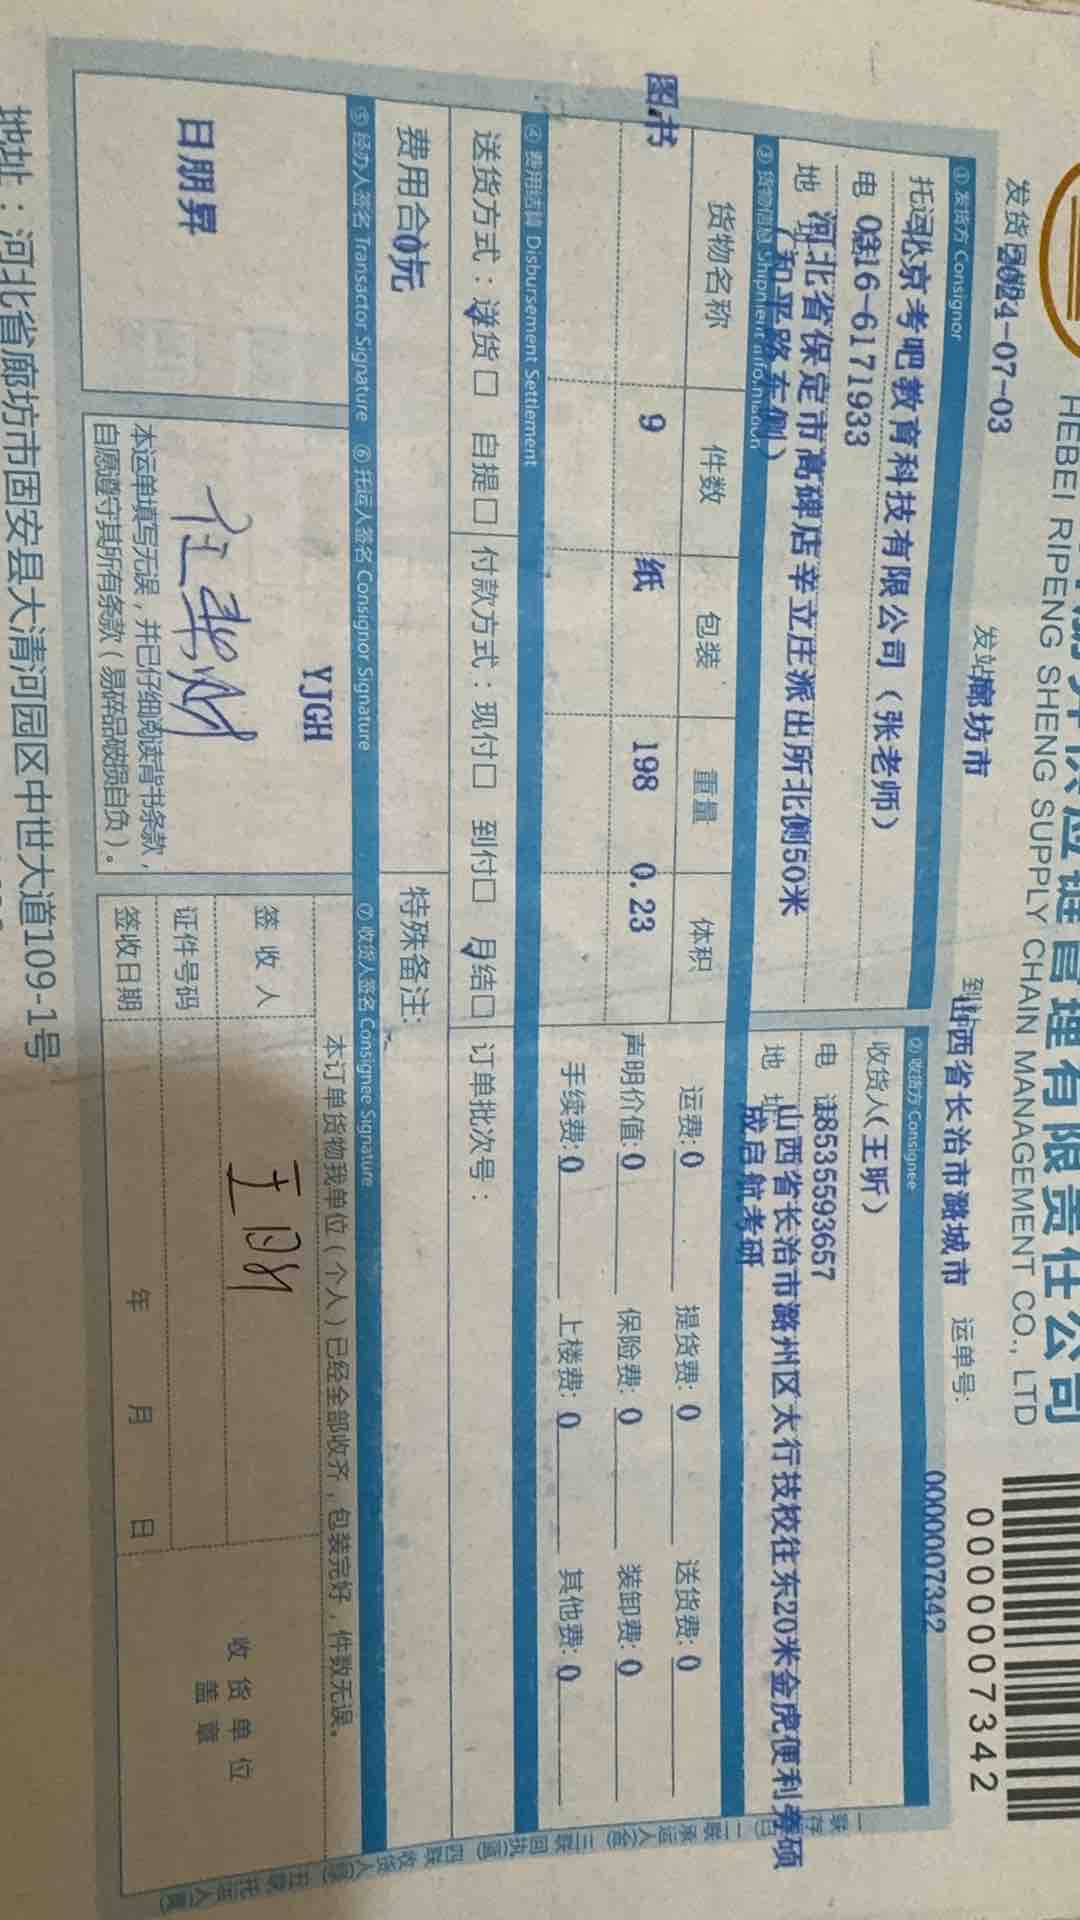 应链管理有限责任公司
HEBEI RIPENG SHENG SUPPLY CHAIN MANAGEMENT CO., LTD
0000007342
0000007342
发货日期 2024-07-03
发站 廊坊市
到站 山西省长治市潞城市
运单号:
① 发货方 Consignor
托运 北京考吧教育科技有限公司（张老师）
电 0316-6171933
地 河北省保定市高碑店辛立庄派出所北侧50米
（和平路东侧）
② 收货方 Consignee
收货人（王昕）
电 话 18535593657
地 址 山西省长治市潞州区太行技校往东20米金虎便利旁硕
成启航考研
③ 货物信息 Shipment Information
货物名称 件数 包装 重量 体积
图书 9 纸 198 0.23
运费:0 提货费:0 送货费:0
声明价值:0 保险费:0 装卸费:0
手续费:0 上楼费:0 其他费:0
④ 费用结算 Disbursement Settlement
送货方式：送货☐ 自提☐ 付款方式：现付☐ 到付☐ 月结☐ 订单批次号：
费用合 0元
特殊备注:
⑤ 经办人签名 Transactor Signature
⑥ 托运人签名 Consignor Signature
⑦ 收货人签名 Consignee Signature
日朋昇
YJGH
本运单填写无误，并已仔细阅读背书条款，
自愿遵守其所有条款（易碎品破损自负）。
本订单货物我单位（个人）已经全部收齐，包装完好，件数无误。
签收人
证件号码
签收日期 年 月 日
收货单位
盖章
地址：河北省廊坊市固安县大清河园区中世大道109-1号